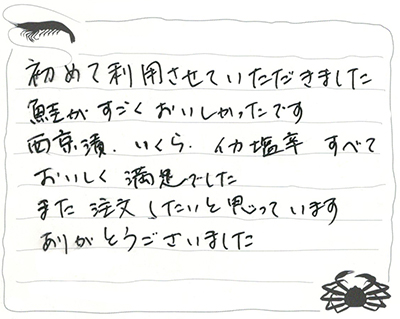 初めて利用させていただきました
鮭がすごくおいしかったです
西京漬.いくら.イカ塩辛 すべて
おいしく満足でした
また注文したいと思っています
ありがとうございました